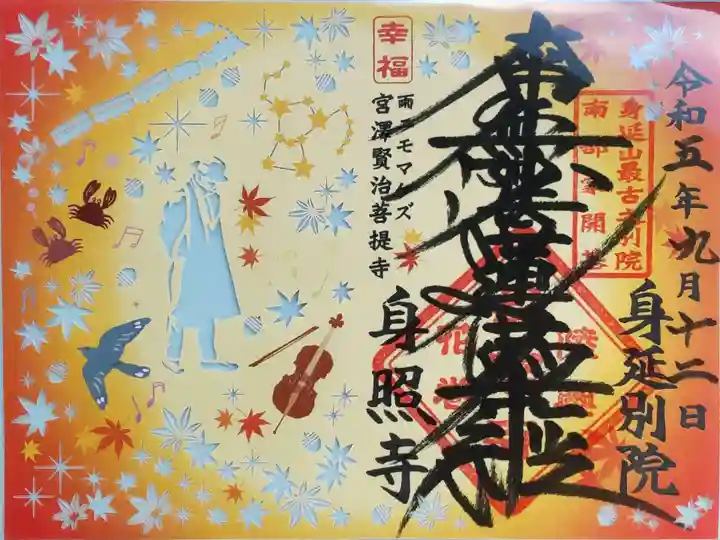 令和五年九月十二日
身延別院
身延山最古之別院
南部家開基
南無妙法蓮華経
雨ニモマケズ
宮澤賢治菩提寺
身照寺
幸福